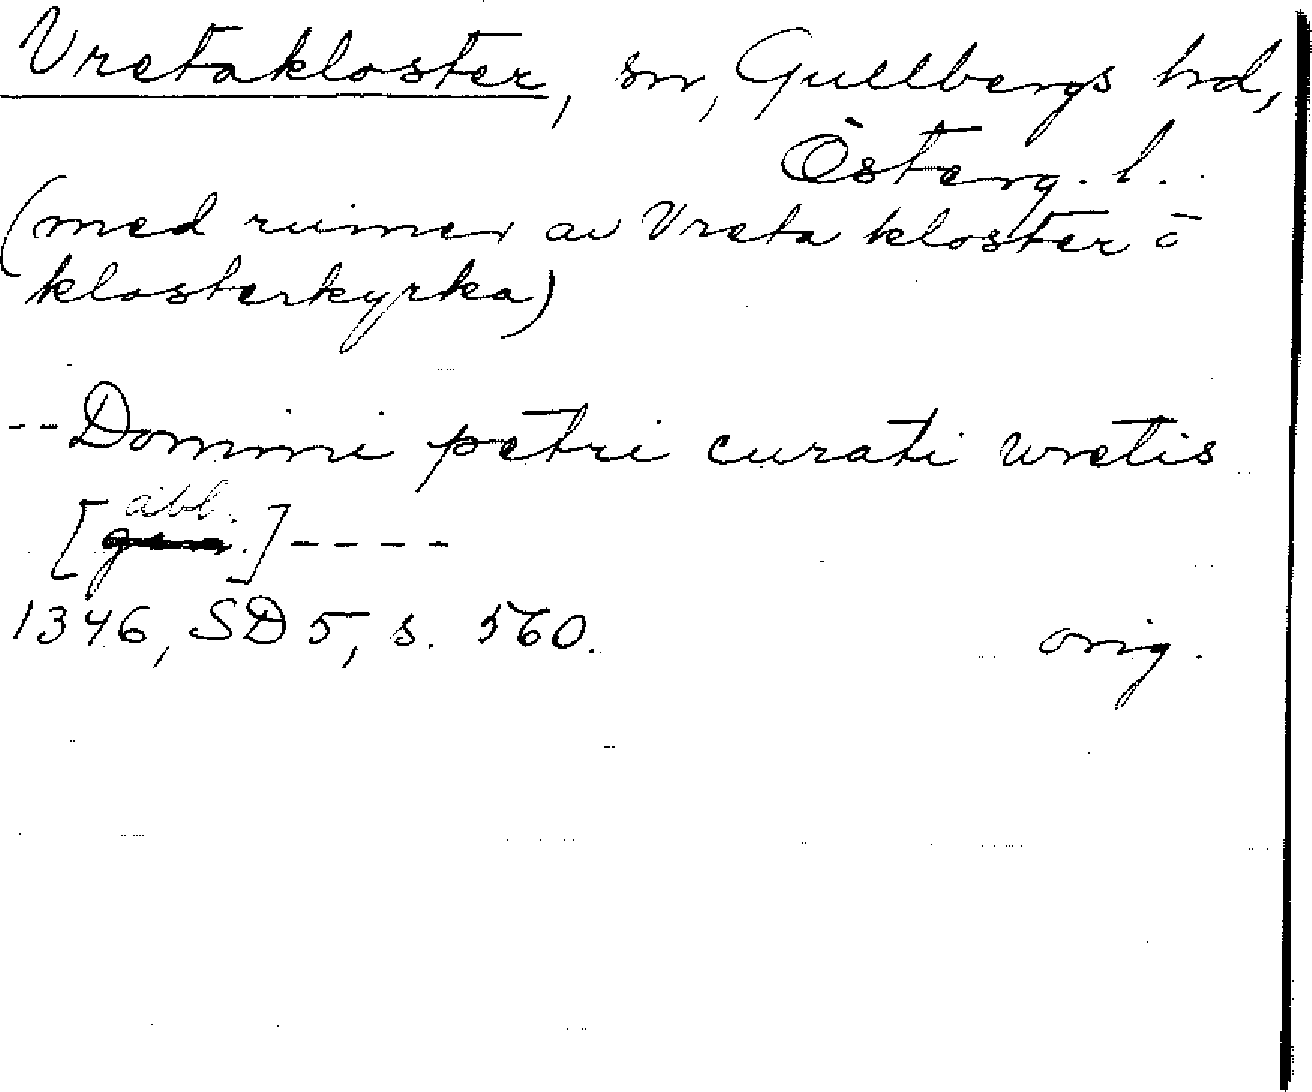 Vretakloster, sn, Gullbergs hd,
Österg. l.
(med ruiner av Vreta kloster o
klosterkyrka)
--Domini petri curati wretis
[abl.]----
1346, SD 5, s. 560. orig.